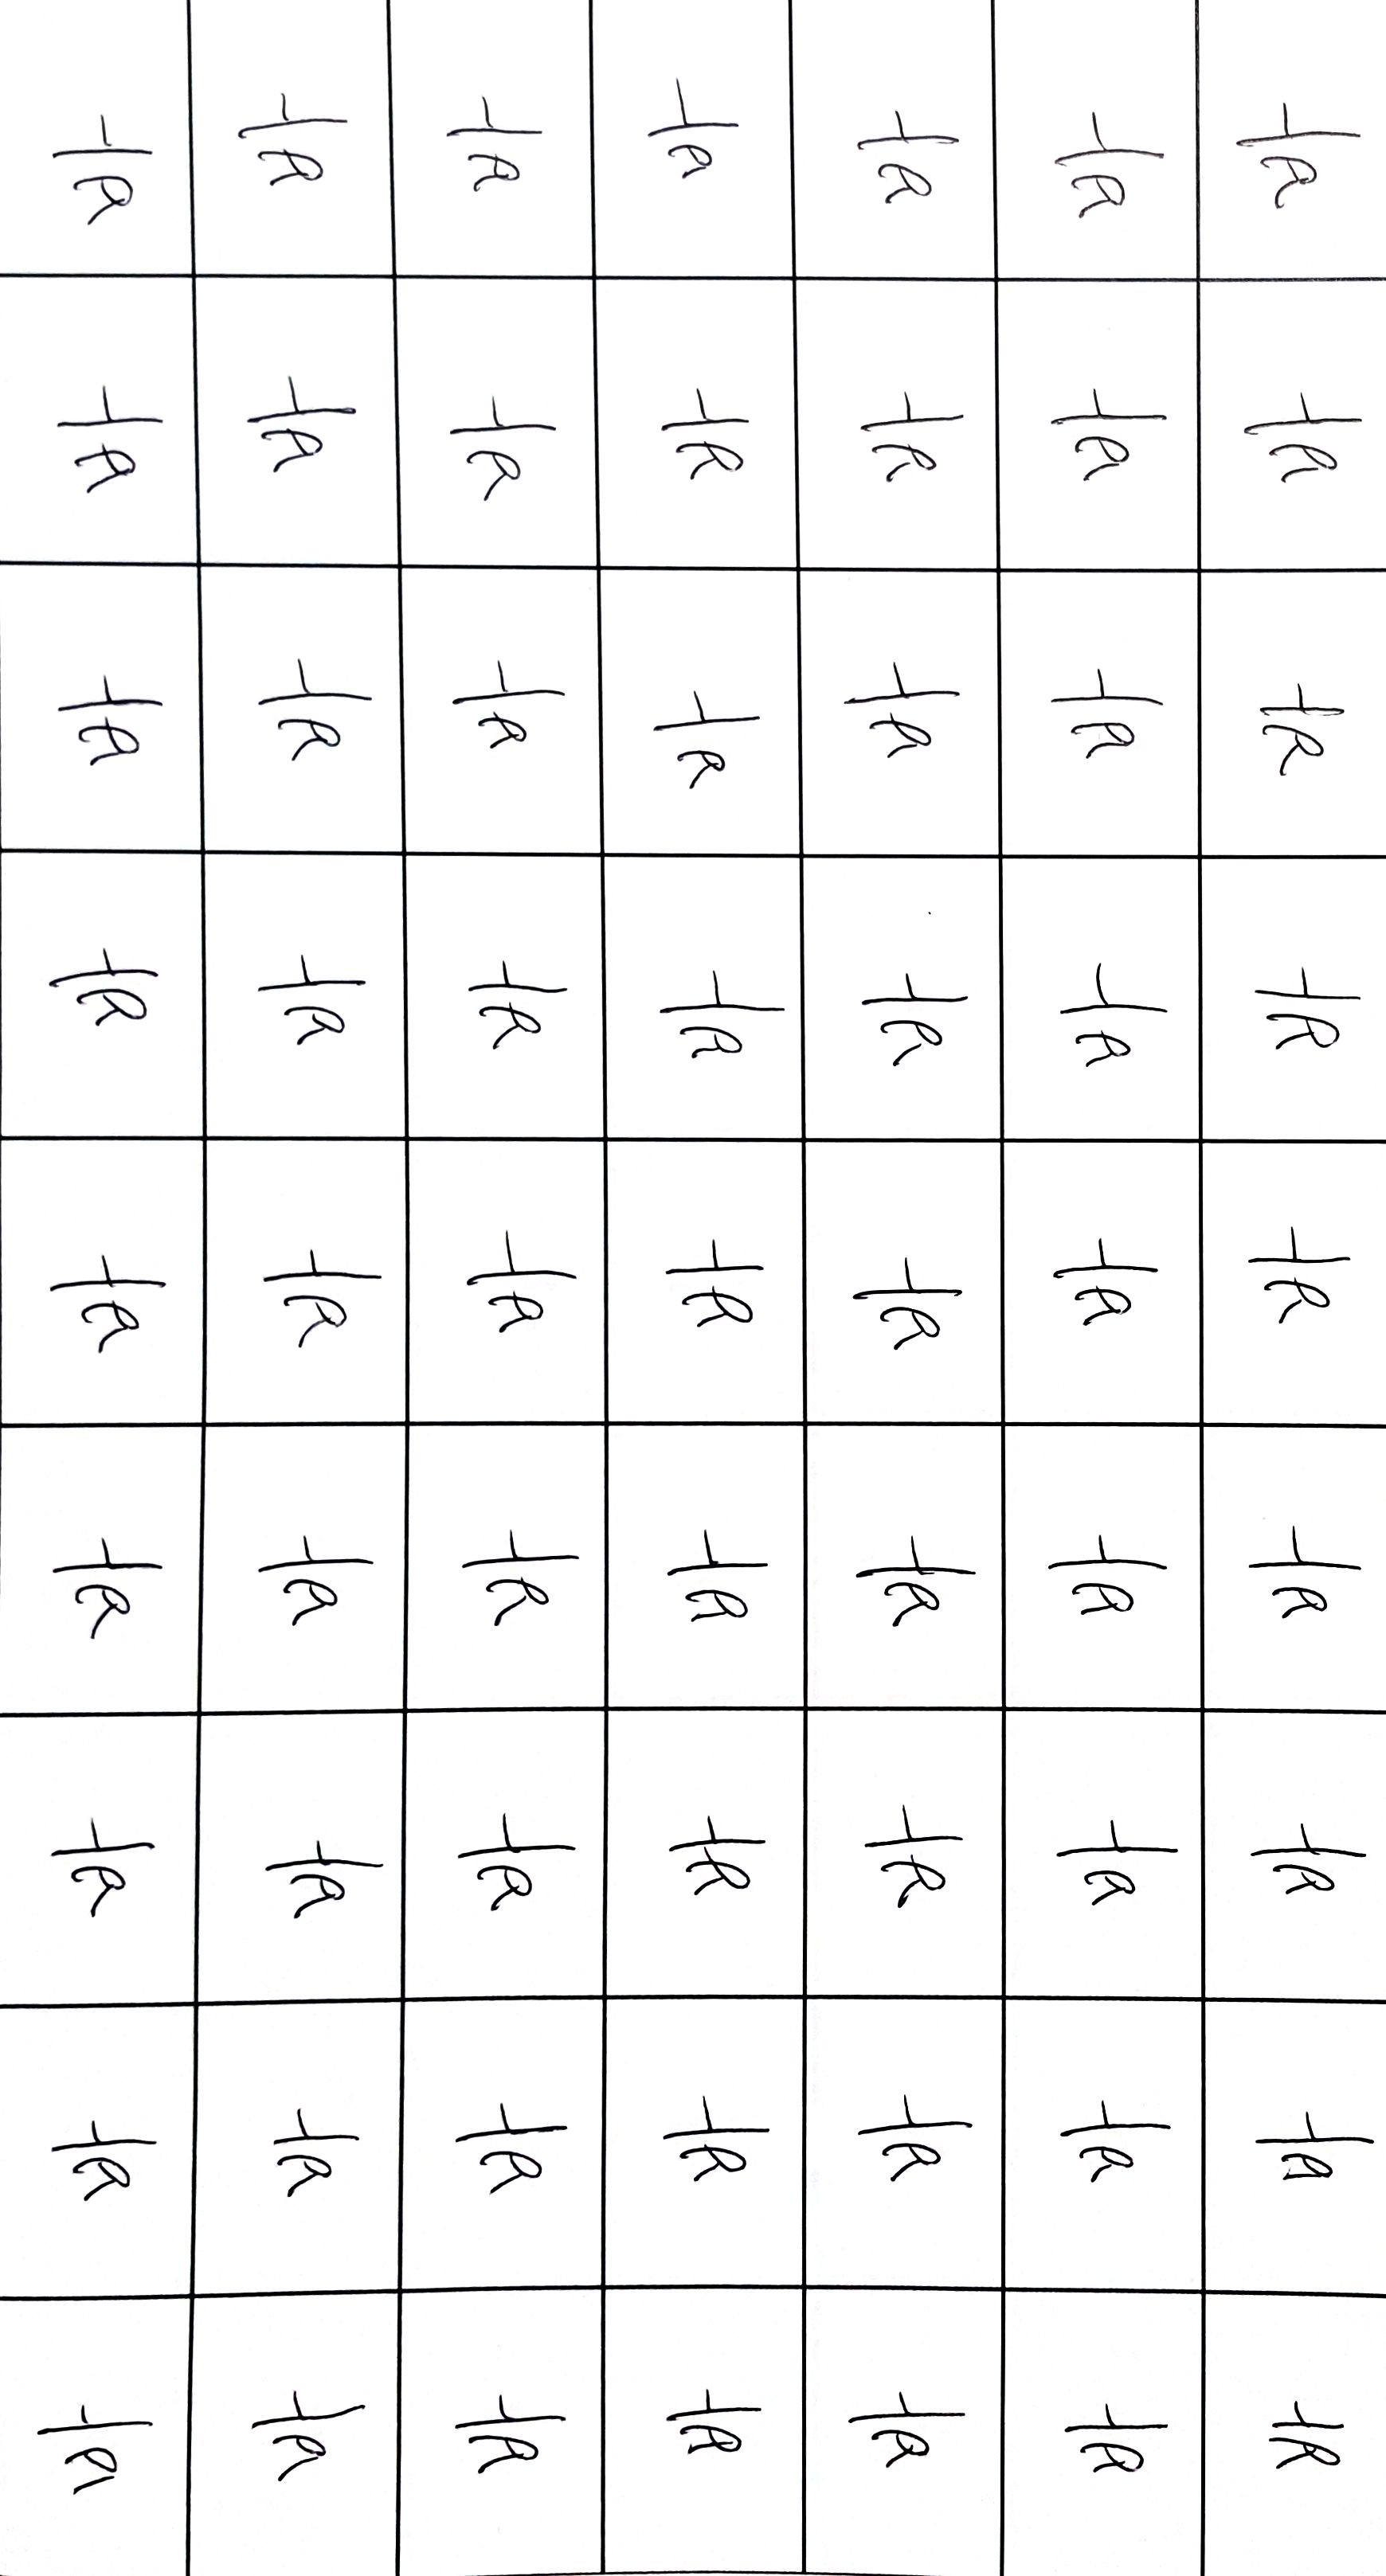 바 바 바 바 바 바 바 바 바
바 바 바 바 바 바 바 바 바
바 바 바 바 바 바 바 바 바
바 바 바 바 바 바 바 바 바
바 바 바 바 바 바 바 바 바
바 바 바 바 바 바 바 바 바
바 바 바 바 바 바 바 바 바